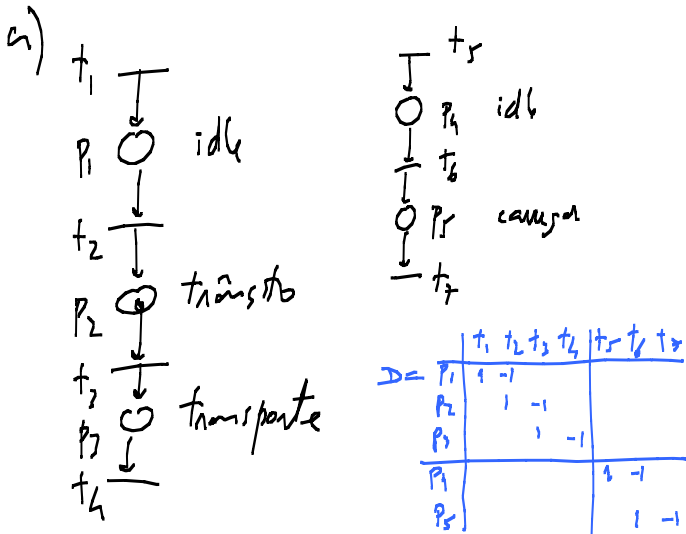 a)
t1
P1 idle
t2
P2 trânsito
t3
P3 transporte
t4
t5
P4 idle
t6
P5 carregar
t7
t1 t2 t3 t4 t5 t6 t7
D= P1 1 -1
P2 1 -1
P3 1 -1
P4 1 -1
P5 1 -1